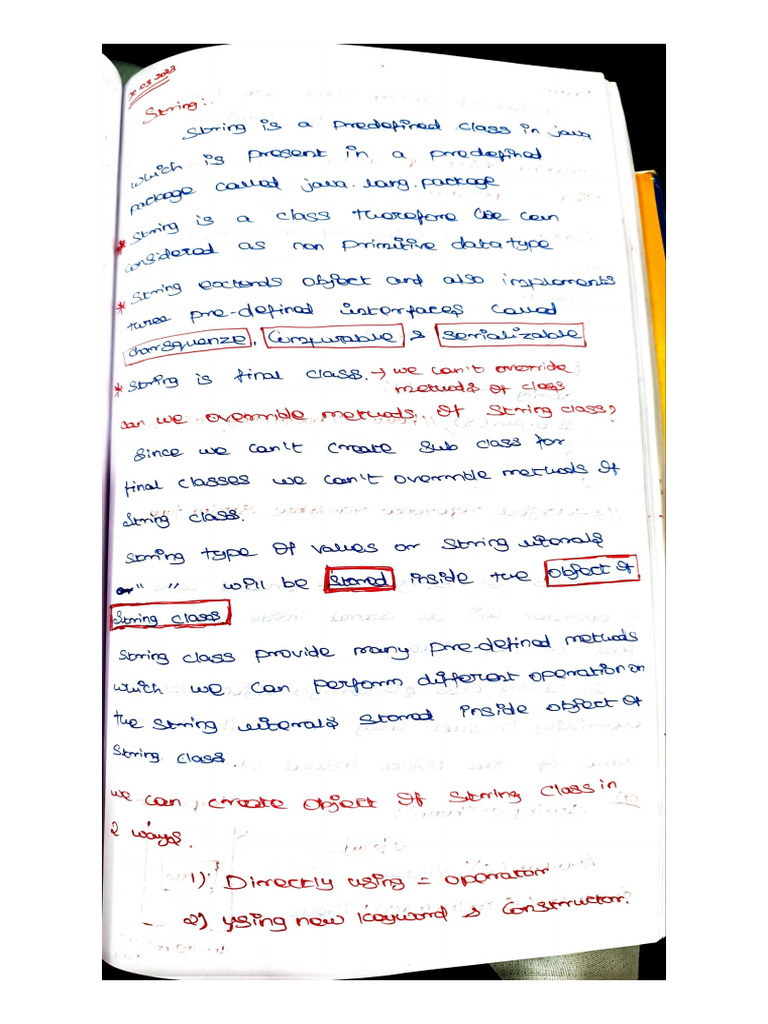 20.03.2023
String:-
String is a predefined class in java
which is present in a predefined
package called java.lang.package
* String is a class therefore we can
considered as non primitive data type
* String extends object and also implements
three pre-defined interfaces called
charsquenze, Comparable & Serializable
* String is final class. → we can't override
methods of class
can we override methods of String class?
Since we can't create sub class for
final classes we can't override methods of
String class.
String type of values or String literals
" " will be stored inside the object of
String class.
String class provide many pre-defined methods
which we can perform different operation on
the string literals stored inside object of
String class.
we can, create object of String class in
2 ways.
1) Directly using = operator
2) using new keyword & constructor.